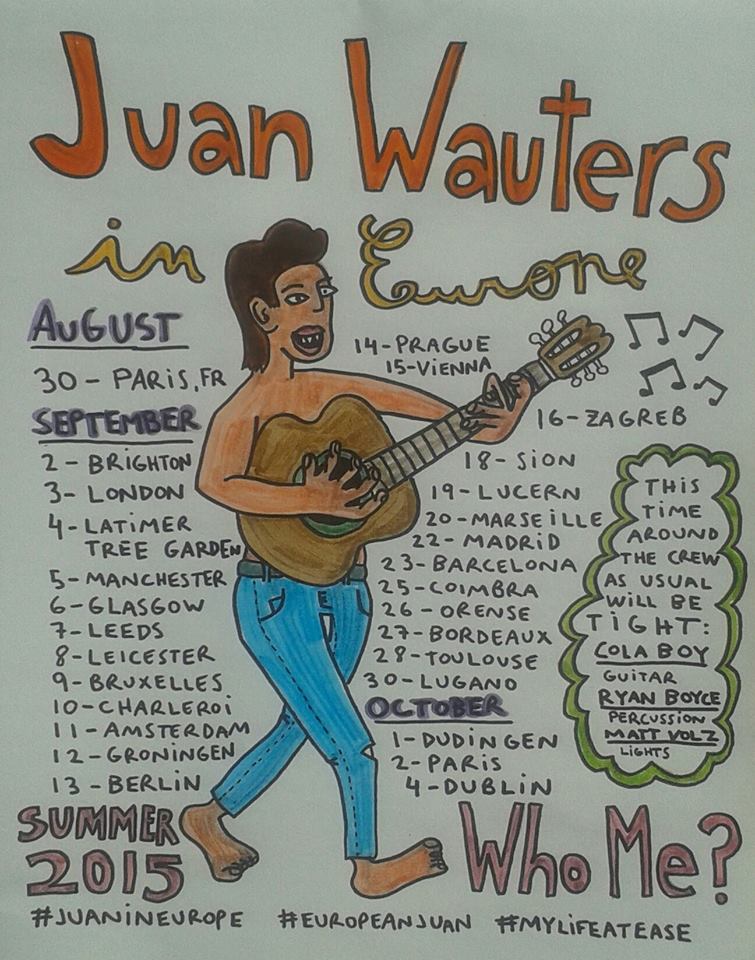 Juan Wauters
in Europe
AUGUST
30 - PARIS, FR
SEPTEMBER
2 - BRIGHTON
3 - LONDON
4 - LATIMER
TREE GARDEN
5 - MANCHESTER
6 - GLASGOW
7 - LEEDS
8 - LEICESTER
9 - BRUXELLES
10 - CHARLEROi
11 - AMSTERDAM
12 - GRONINGEN
13 - BERLiN
14 - PRAGUE
15 - ViENNA
16 - ZAGREB
18 - SiON
19 - LUCERN
20 - MARSEiLLE
22 - MADRiD
23 - BARCELONA
25 - COiMBRA
26 - ORENSE
27 - BORDEAUX
28 - TOULOUSE
30 - LUGANO
OCTOBER
1 - DUDiNGEN
2 - PARiS
4 - DUBLiN
THiS
TiME
AROUND
THE CREW
AS USUAL
WiLL BE
TiGHT:
COLA BOY
GUiTAR
RYAN BOYCE
PERCUSSiON
MATT VOLZ
LiGHTS
SUMMER
2015
Who Me?
#JUANiNEUROPE #EUROPEANJUAN #MYLiFEATEASE